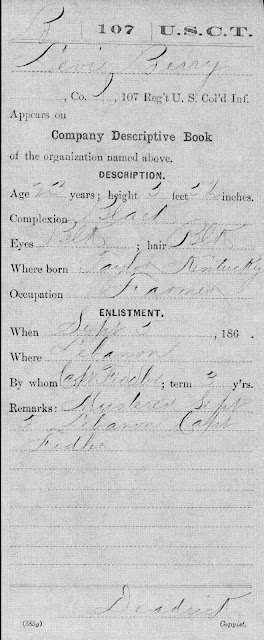 B | 107 | U.S.C.T.
Levis Berry
, Co. , 107 Reg't U. S. Col'd Inf.
Appears on
Company Descriptive Book
of the organization named above.
DESCRIPTION.
Age 23 years; height 5 feet inches.
Complexion Black
Eyes Blk ; hair Blk
Where born Taylor Kentucky
Occupation Farmer
ENLISTMENT.
When Sept 5 , 186 .
Where Lebanon
By whom Capt Fidler; term 3 y'rs.
Remarks: Mustered Sept
5 Lebanon Capt
Fidler
Deadrick
(383g) Copyist.